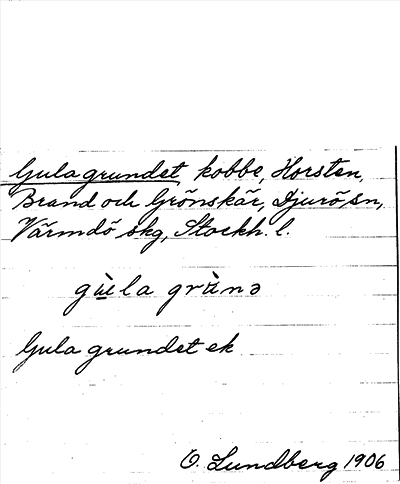 Gula grundet, kobbe, Horsten,
Brand och Grönskär, Djurö, sn,
Värmdö skg, Stockh. l.
gùla grùnə
Gula grundet ek
O. Lundberg 1906